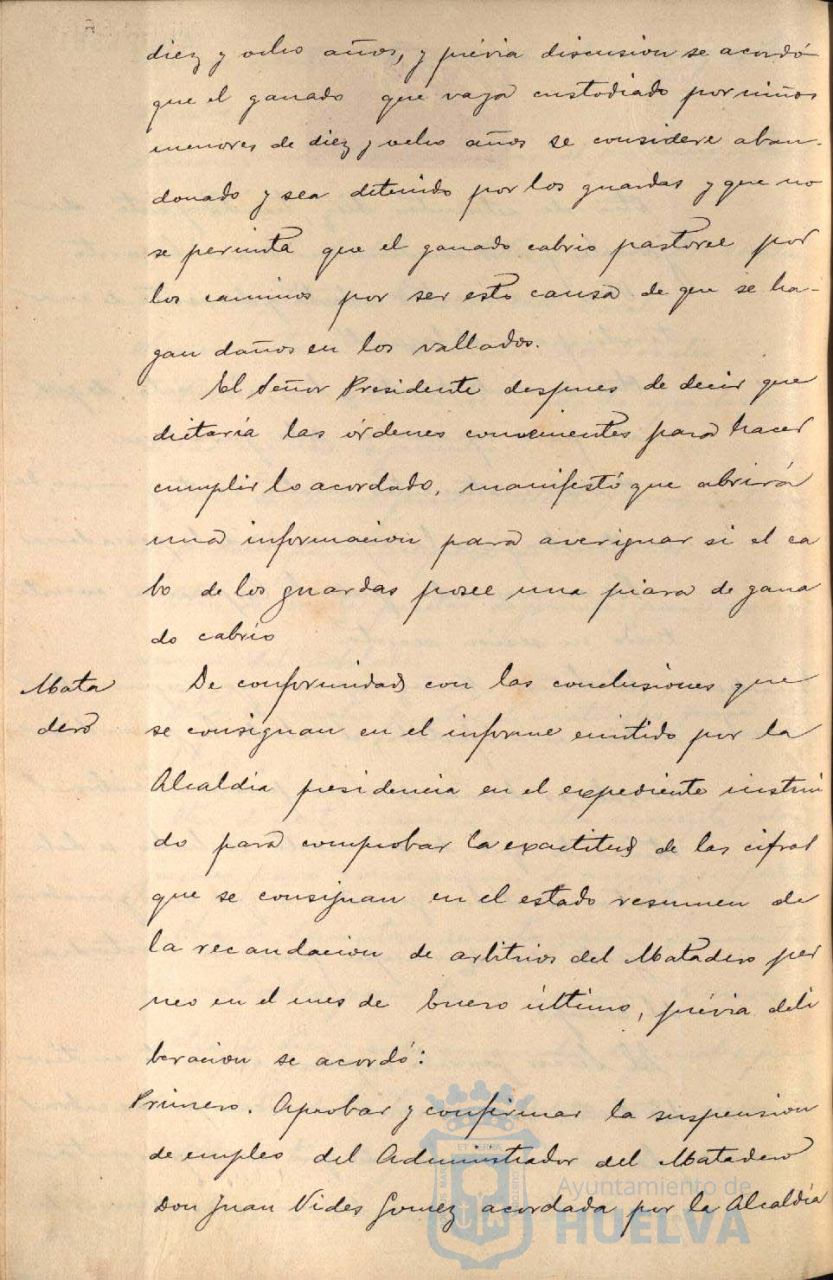 diez y ocho años, y prévia discusion se acordó
que el ganado que vaya custodiado por niños
menores de diez y ocho años se considere aban-
donado y sea detenido por los guardas y que no
se permita que el ganado cabrio pastoree por
los caminos por ser esto causa de que se ha-
gan daños en los vallados.
El Señor Presidente despues de decir que
dictaría las órdenes convenientes para hacer
cumplir lo acordado, manifestó que abrirá
una informacion para averiguar si el ca
bo de los guardas posee una piara de gana
do cabrio
Mata
dero
De conformidad con las conclusiones que
se consignan en el informe emitido por la
Alcaldia presidencia en el expediente instrui
do para comprobar la exactitud de las cifras
que se consignan en el estado resumen de
la recaudacion de arbitrios del Matadero per
neo en el mes de Enero último, prévia deli
beracion se acordó:
Primero. Aprobar y confirmar la suspension
de empleo del Administrador del Matadero
Don Juan Vides Gomez acordada por la Alcaldía
Ayuntamiento de
HUELVA